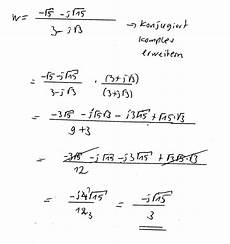 w = (-√5 - j√15) / (3 - j√3) → Konjugiert
komplex
erweitern
= (-√5 - j√15) / (3 - j√3) · (3 + j√3) / (3 + j√3)
= (-3√5 - j√5·√3 - j3√15 + √15·√3) / (9 + 3)
= (-3√5 - j√15 - j3√15 + √3√5·√3) / 12
= (-j4√15) / 12 3 = (-j√15) / 3